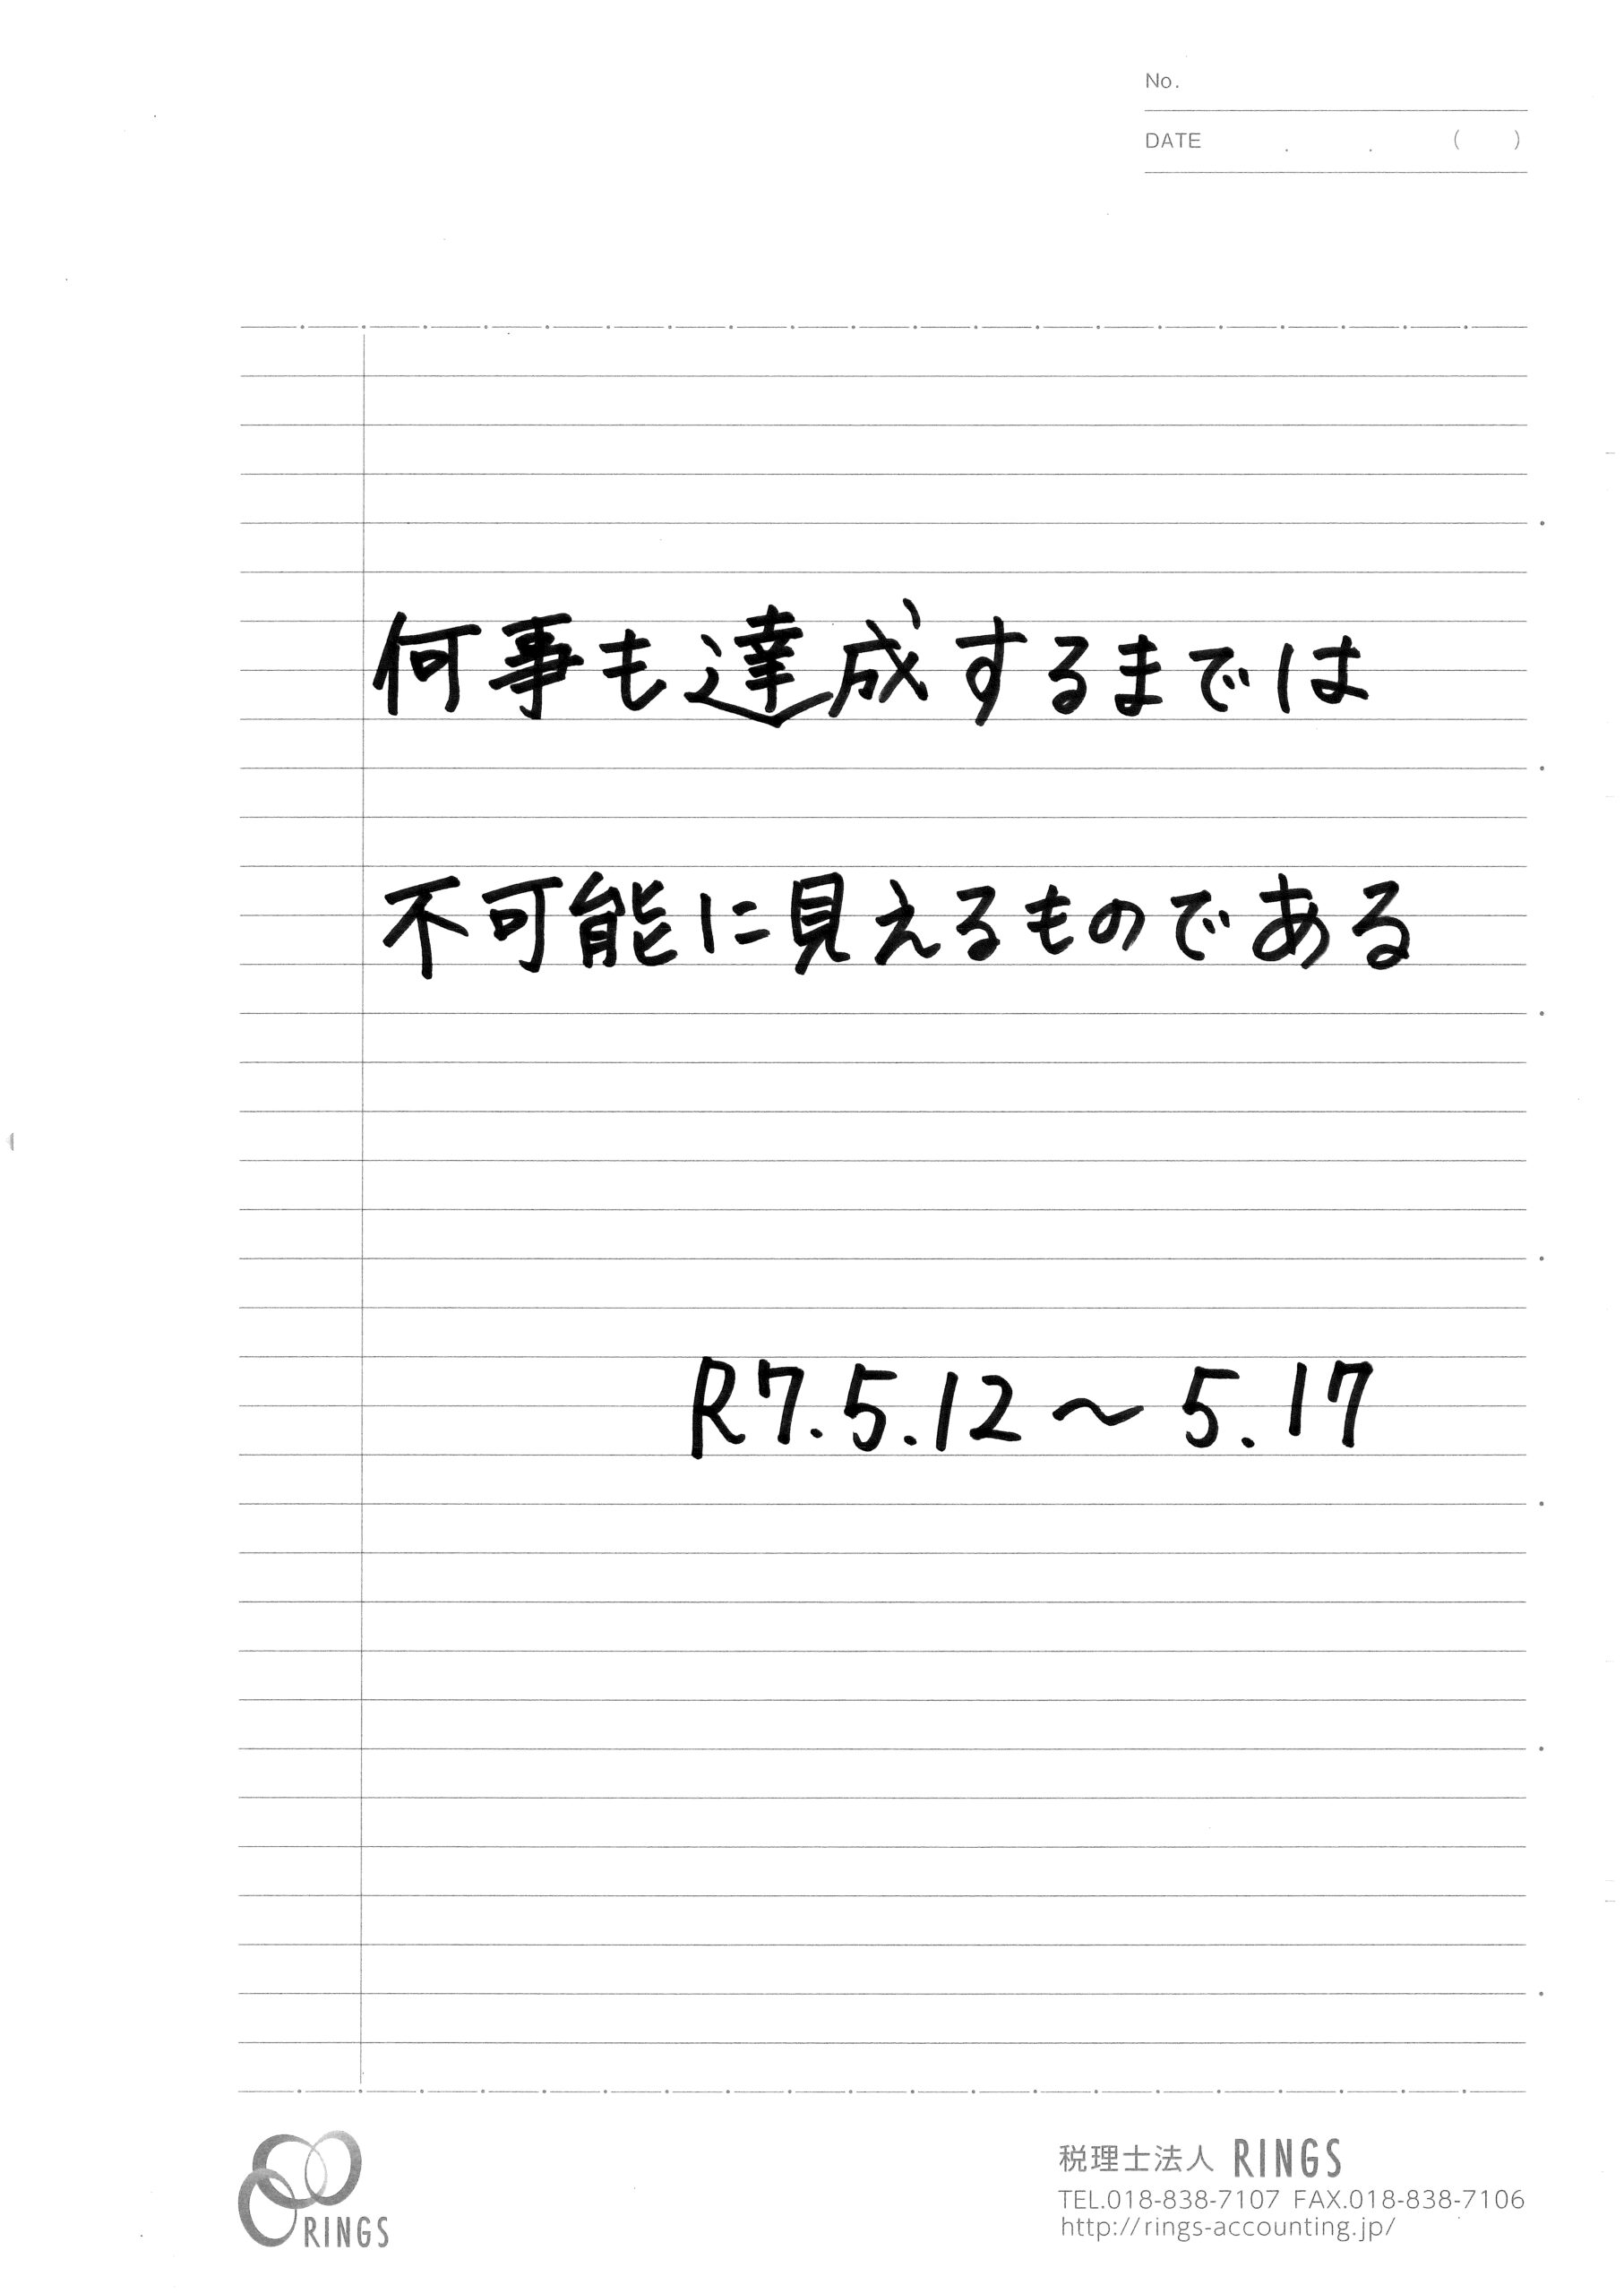 No.
DATE . . ( )
何事も達成するまでは
不可能に見えるものである
R7.5.12〜5.17
RINGS
税理士法人 RINGS
TEL.018-838-7107 FAX.018-838-7106
http://rings-accounting.jp/